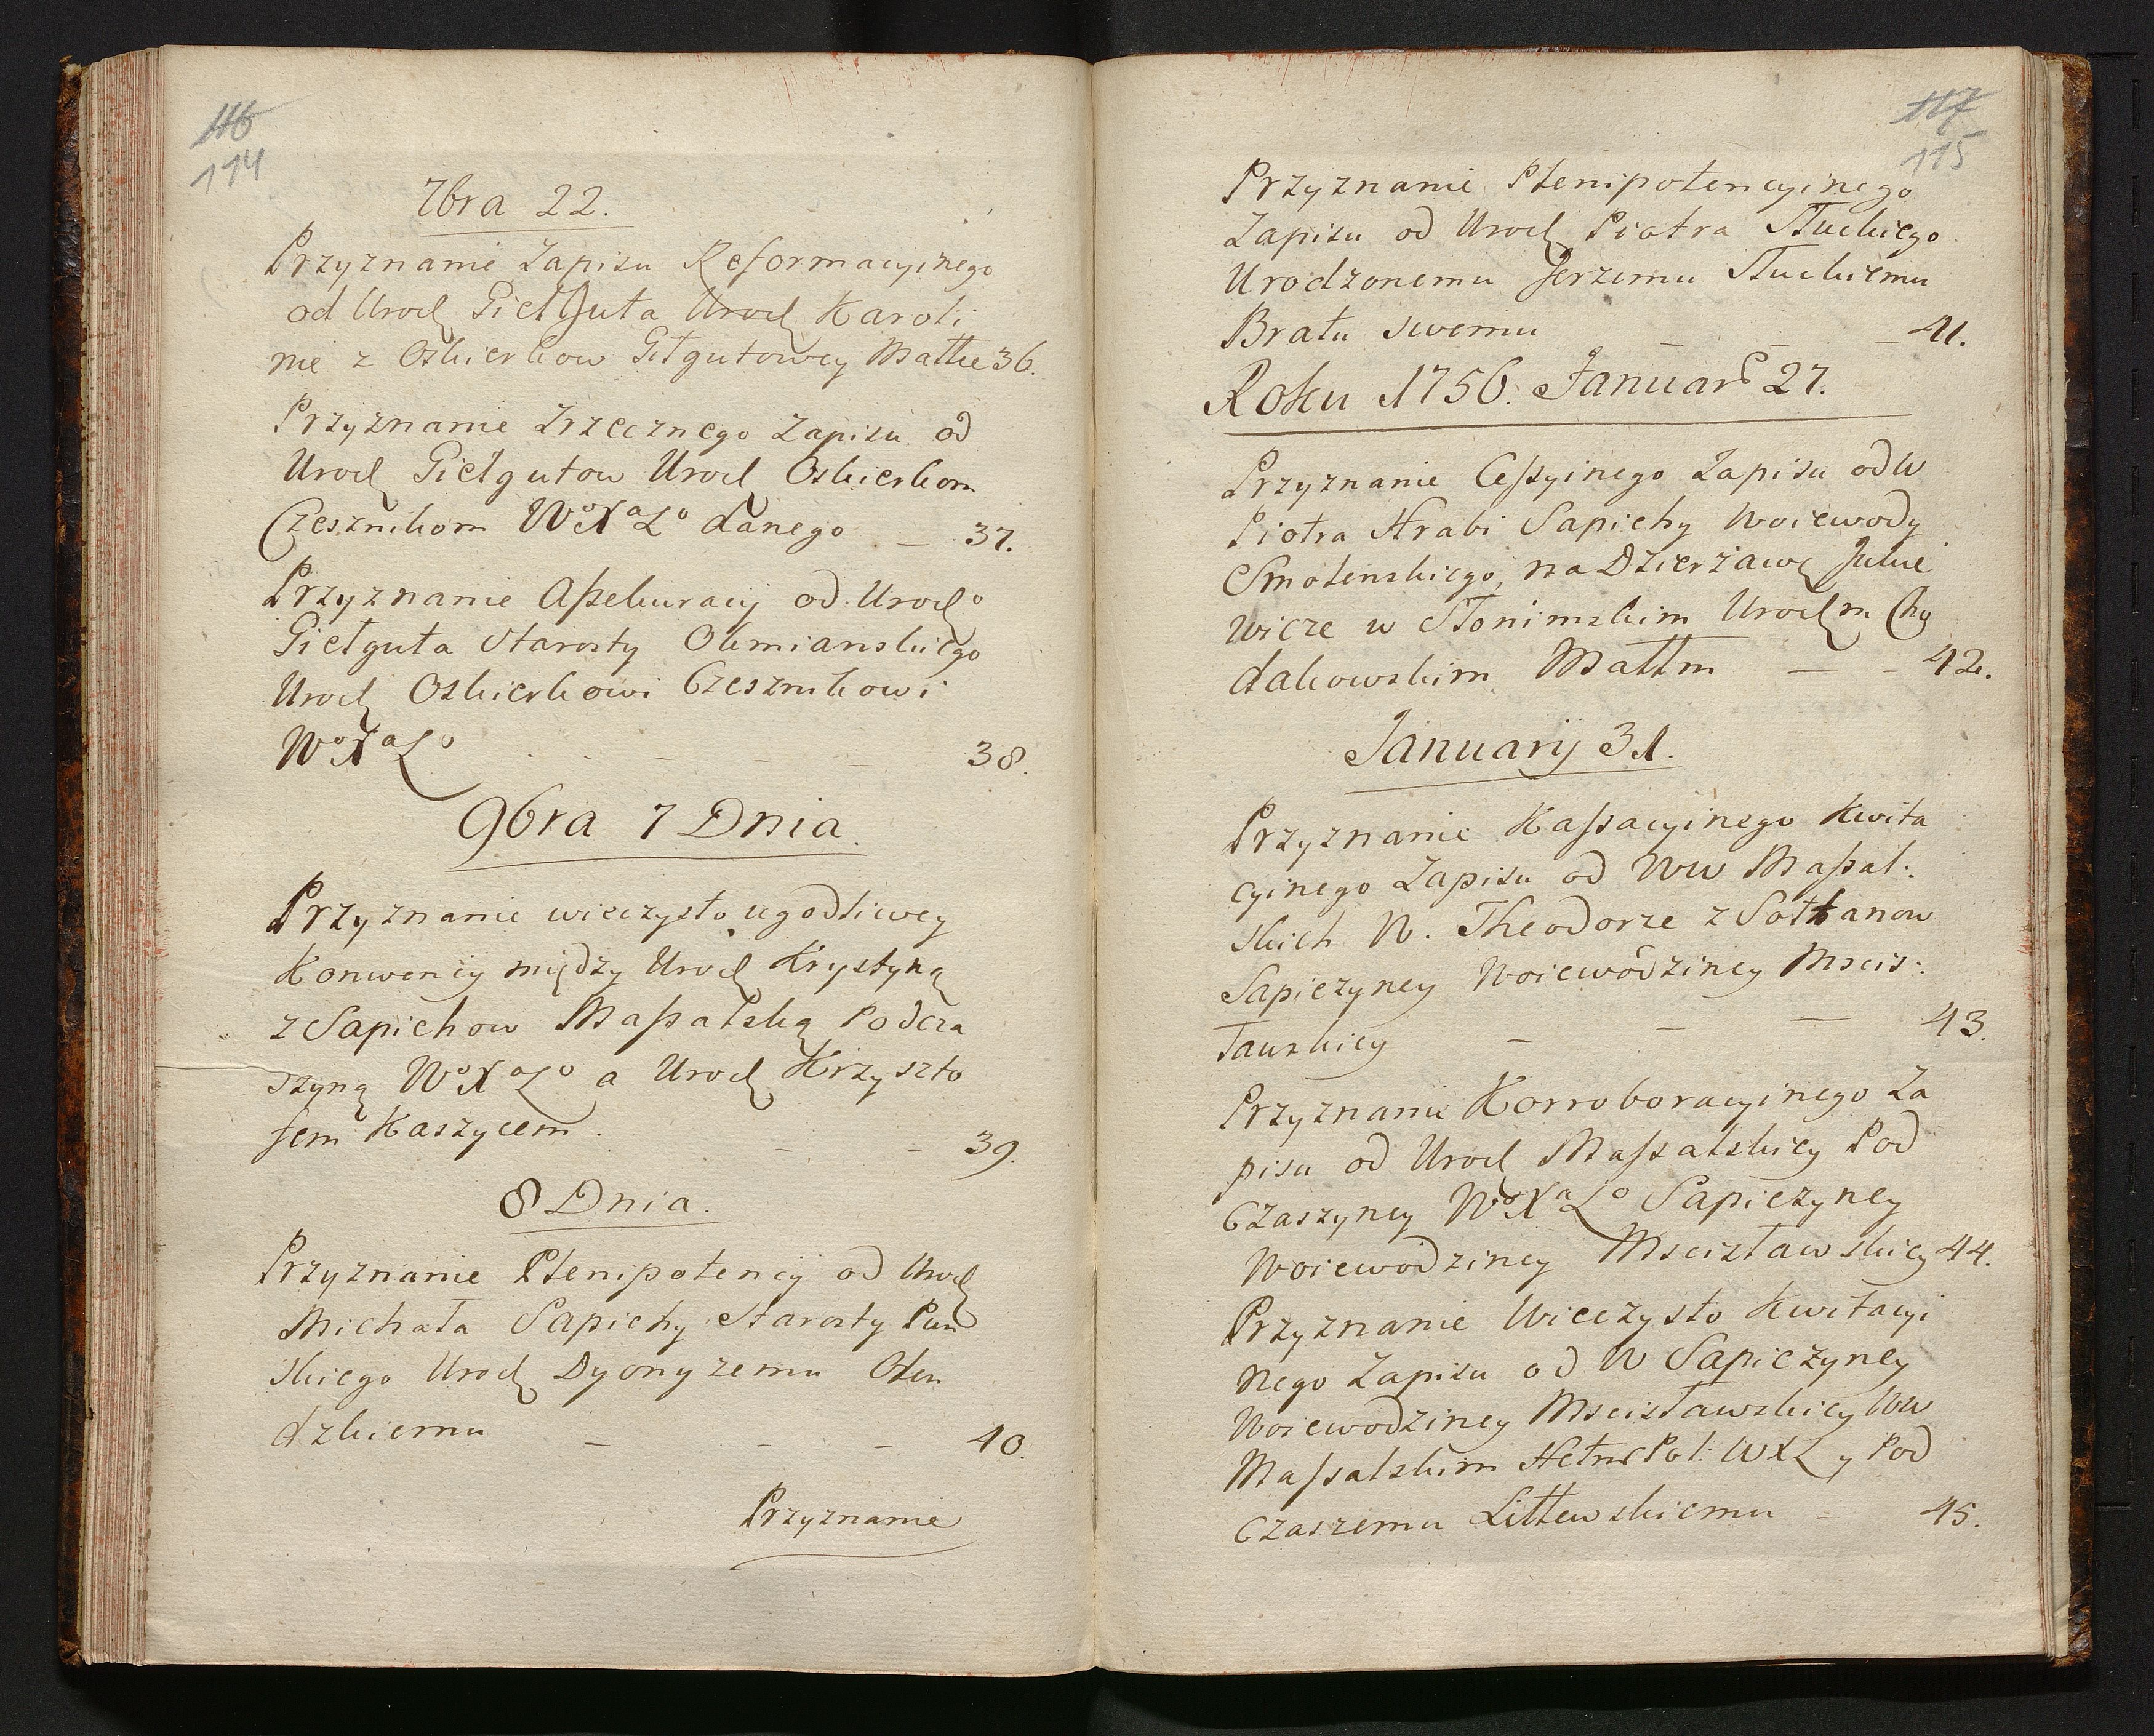 116
114
7bra 22.
Przyznanie Zapisu Reformacyinego
od Urod Giełguta Urod Karoli
nie z Oskierkow Giłgutowey Matce 36.
Przyznanie Zrzecznego Zapisu od
Urod Giełgutow Urod Oskierkom
Czesznikom Wo Xa Lo danego — 37.
Przyznanie Aßekuracyi od Urodo
Giełguta Starosty Oszmianskiego
Urod Oskierkowi Czesznikowi
Wo Xa Lo — — — 38.
9bra 7 Dnia
Przyznanie wieczysto ugodliwey
Konwencij między Urod Krystyną
z Sapiehow Maßalską Podcza
szyną Wo Xa Lo a Urod Krzyszto
fem Kaszycem. — — 39.
8 Dnia.
Przyznanie Plenipotencij od Urod
Michała Sapiehy Starosty Pun
skiego Urod Dyonyzemu Olen
dzkiemu — — — 40.
Przyznanie
117
115
Przyznanie Plenipotencyinego
Zapisu od Urod Piotra Słuckiego
Urodzonemu Jerzemu Słuckiemu
Bratu swemu — — — 41.
Roku 1756. Januar 27.
Przyznanie Ceßyinego Zapisu od W
Piotra Hrabi Sapiehy Woiewody
Smolenskiego, na Dzierżawę
wicze w Słonimskim Urodm Chy
dakowskim Małłm — — 42.
Januarij 31.
Przyznanie Kaßacyinego Kwita
cyinego Zapisu od WW Maßal:
skich W. Theodorze z Sołtanow
Sapiezyney Woiewódziney Mscis:
ławskiey — — — 43.
Przyznanie Korroboracyinego Za
pisu od Urod Maßalskiey Pod
Czaszyney Wo Xa Lo Sapiezyney
Woiewodziney Mscisławskiey 44.
Przyznanie Wieczysto Kwitacyi
nego Zapisu od W Sapiezyney
Woiewodziney Mscisławskiey WW
Maßalskim Hetm Pol: WXL y Pod
Czaszemu Littewskiemu — 45.